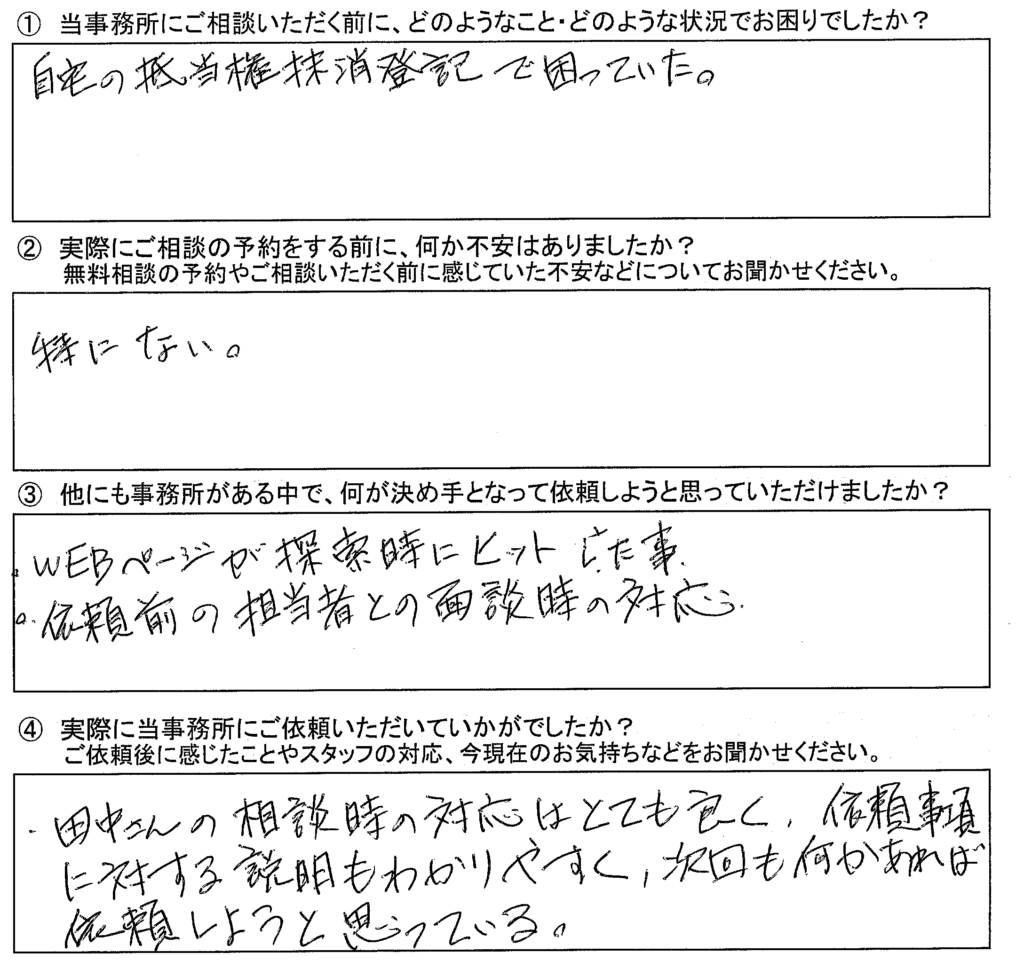 ① 当事務所にご相談いただく前に、どのようなこと・どのような状況でお困りでしたか？
自宅の抵当権抹消登記で困っていた。
② 実際にご相談の予約をする前に、何か不安はありましたか？
無料相談の予約やご相談いただく前に感じていた不安などについてお聞かせください。
特にない。
③ 他にも事務所がある中で、何が決め手となって依頼しようと思っていただけましたか？
・WEBページが探索時にヒットした事.
・依頼前の担当者との面談時の対応.
④ 実際に当事務所にご依頼いただいていかがでしたか？
ご依頼後に感じたことやスタッフの対応、今現在のお気持ちなどをお聞かせください。
・田中さんの相談時の対応はとても良く、依頼事項
に対する説明もわかりやすく、次回も何かあれば
依頼しようと思っている。